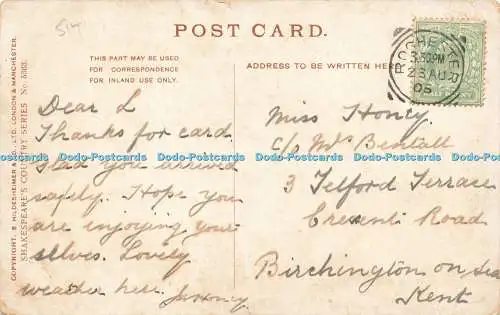 514
POST CARD.
THIS PART MAY BE USED
FOR CORRESPONDENCE
FOR INLAND USE ONLY.
ADDRESS TO BE WRITTEN HERE
COPYRIGHT, S. HILDESHEIMER & CO., LTD. LONDON & MANCHESTER.
SHAKESPEARE'S COUNTRY SERIES No
ROCHESTER
3.30PM
23 AU
05
Dear L
Thanks for card
Glad you arrived
safely. Hope you
are enjoying your
selves. Lovely
weather here. Honey
Miss Honey.
c/o Mrs Bentall
3 Telford Terrace
Cresent Road
Birchington on Sea
Kent
Dodo-Postcards Dodo-Postcards Dodo-Postcards Dodo-Postcards Dodo-Postcards Dodo-Postcards